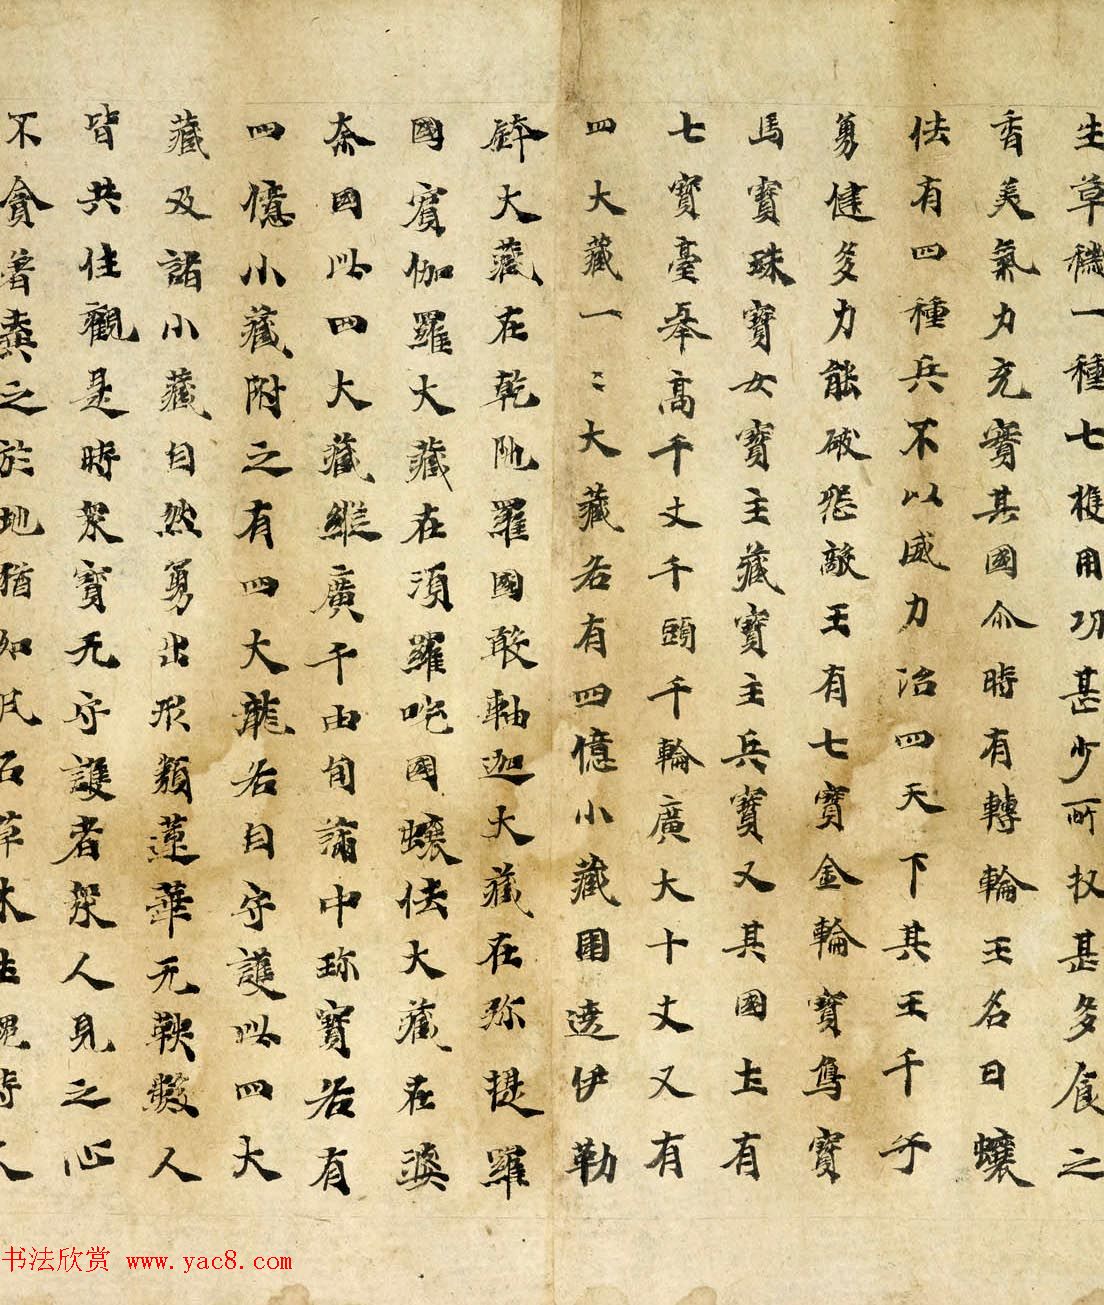 生草穢一種七檴用功甚少所収甚多食之
香美氣力充實其國尒時有轉輪王名曰蠰
佉有四種兵不以威力治四天下其王千子
勇健多力能破怨敵王有七寶金輪寶鳥寶
馬寶珠寶女寶主藏寶主兵寶又其國土有
七寶臺舉高千丈千頭千輪廣大十丈又有
四大藏一〻大藏名有四億小藏圍遶伊勒
鉢大藏在乾陁羅國敢軸迦大藏在弥提羅
國賓伽羅大藏在湏羅吒國蠰佉大藏在婆
㮈國以四大藏縱廣千由旬滿中珎寶名有
四億小藏附之有四大龍名自守護以四大
藏及諸小藏自然勇出形類蓮華无鞅數人
皆共住觀是時眾寶无守護者眾人見之心
不貪著棄之於地猶如瓦石草木